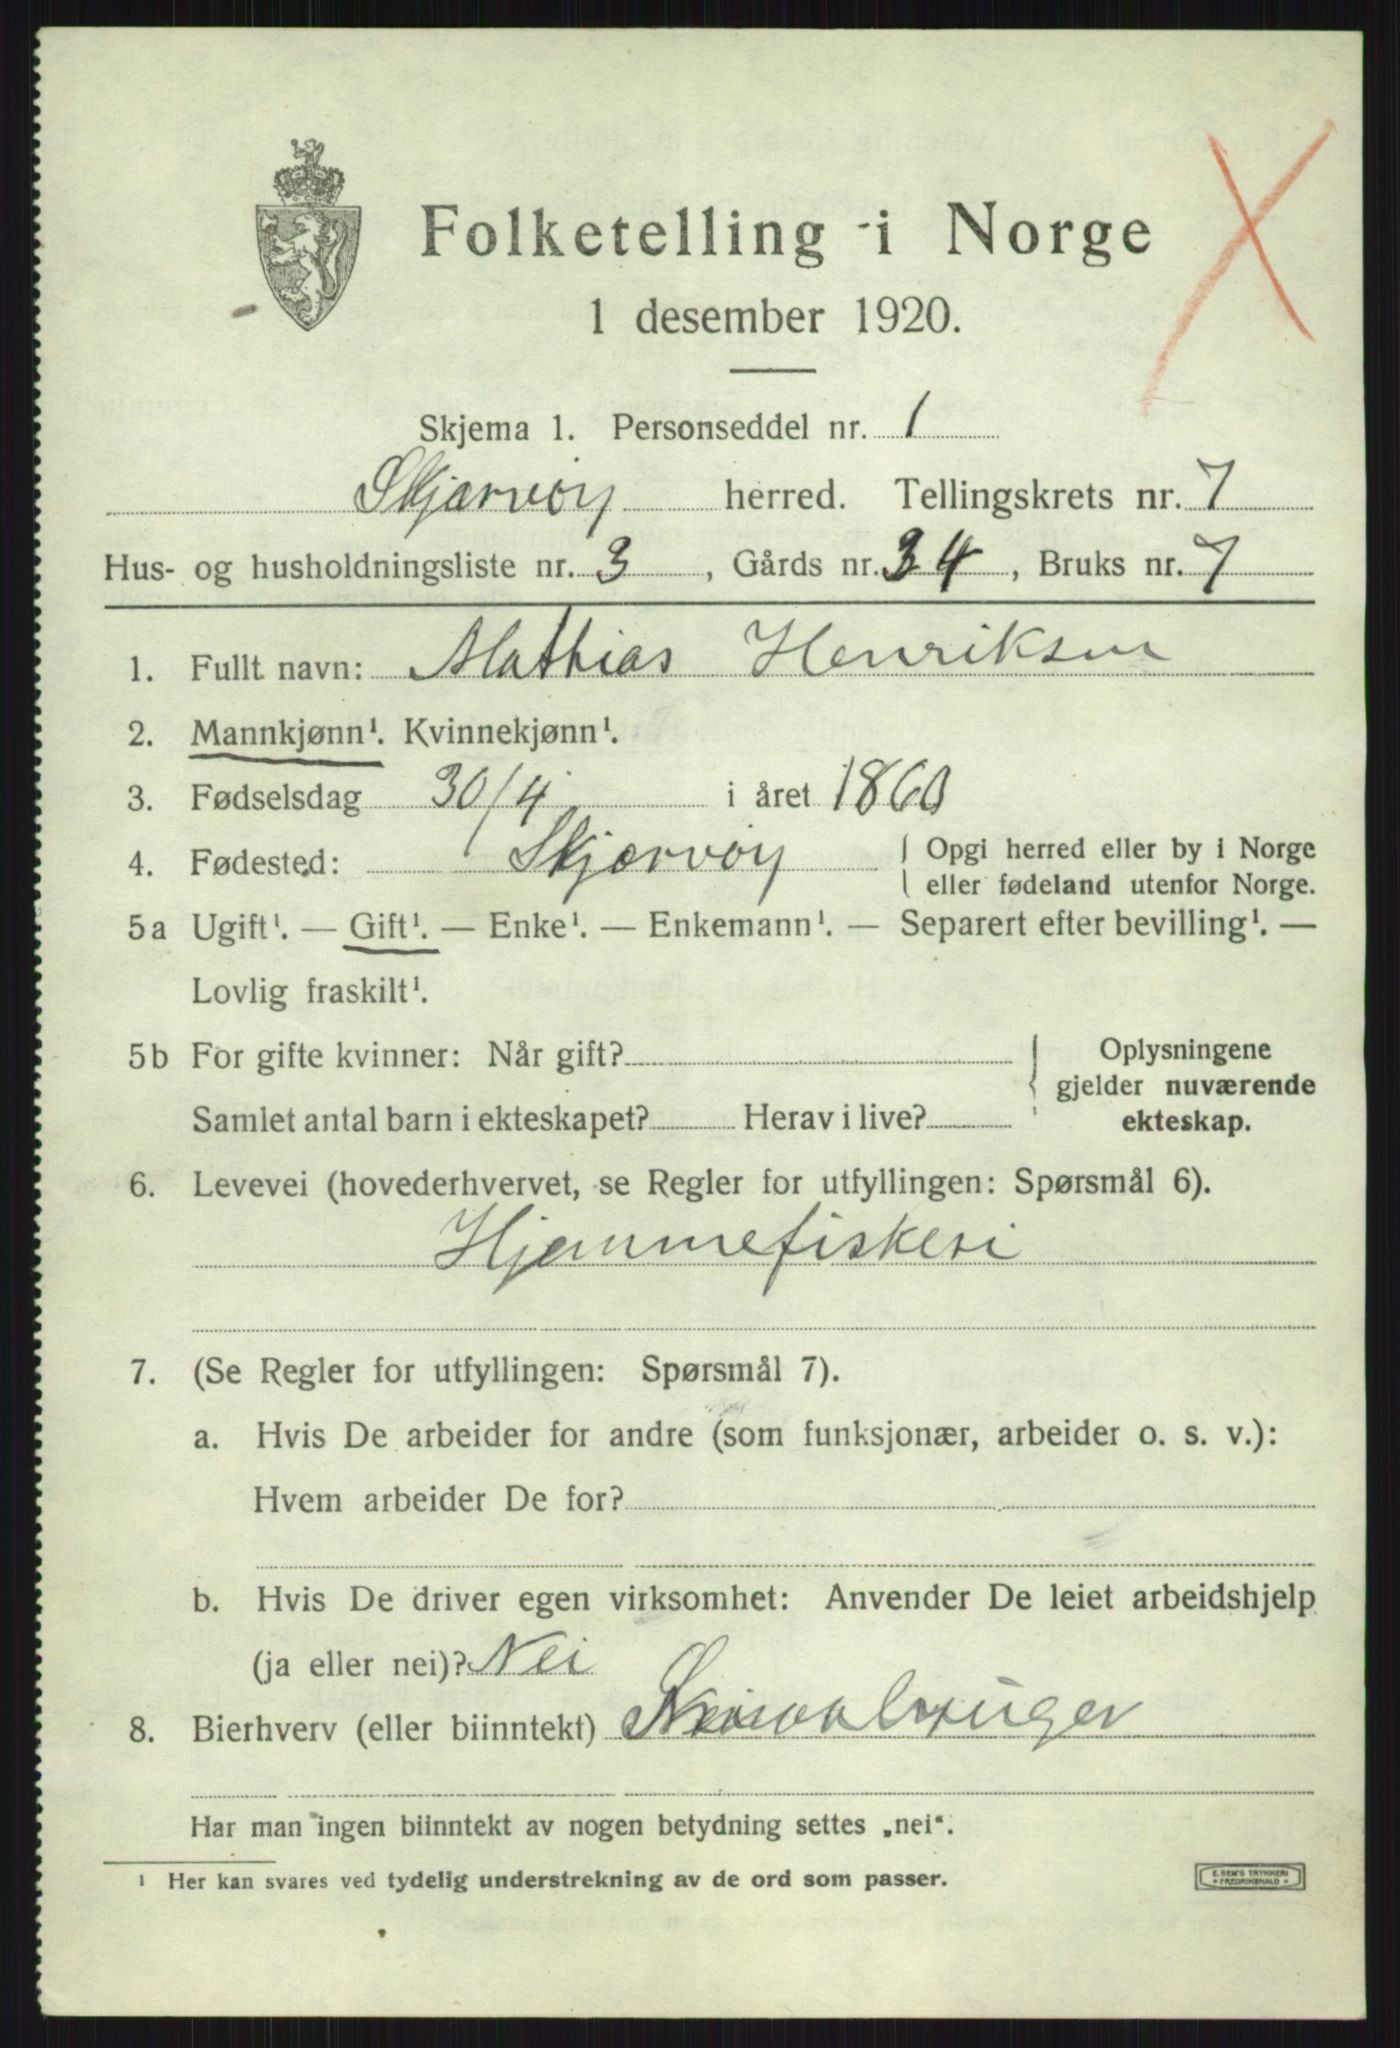 Folketelling i Norge
1 desember 1920.
Skjema 1. Personseddel nr. 1
Skjærvøy herred. Tellingskrets nr. 7
Hus- og husholdningsliste nr. 3, Gårds nr. 34, Bruks nr. 7
1. Fullt navn: Mathias Henriksen
2. Mannkjønn¹. Kvinnekjønn¹.
3. Fødselsdag 30/4 i året 1860
4. Fødested: Skjærvøy { Opgi herred eller by i Norge
eller fødeland utenfor Norge.
5a Ugift¹. — Gift¹. — Enke¹. — Enkemann¹. — Separert efter bevilling¹. —
Lovlig fraskilt¹.
5b For gifte kvinner: Når gift? { Oplysningene
gjelder nuværende
Samlet antal barn i ekteskapet? Herav i live? ekteskap.
6. Levevei (hovederhvervet, se Regler for utfyllingen: Spørsmål 6).
Hjemmefiskeri
7. (Se Regler for utfyllingen: Spørsmål 7).
a. Hvis De arbeider for andre (som funksjonær, arbeider o. s. v.):
Hvem arbeider De for?
b. Hvis De driver egen virksomhet: Anvender De leiet arbeidshjelp
(ja eller nei)? Nei
8. Bierhverv (eller biinntekt)
Har man ingen biinntekt av nogen betydning settes „nei“.
¹ Her kan svares ved tydelig understrekning av de ord som passer.
E. SEM'S TRYKKERI
* FREDRIKSHALD *